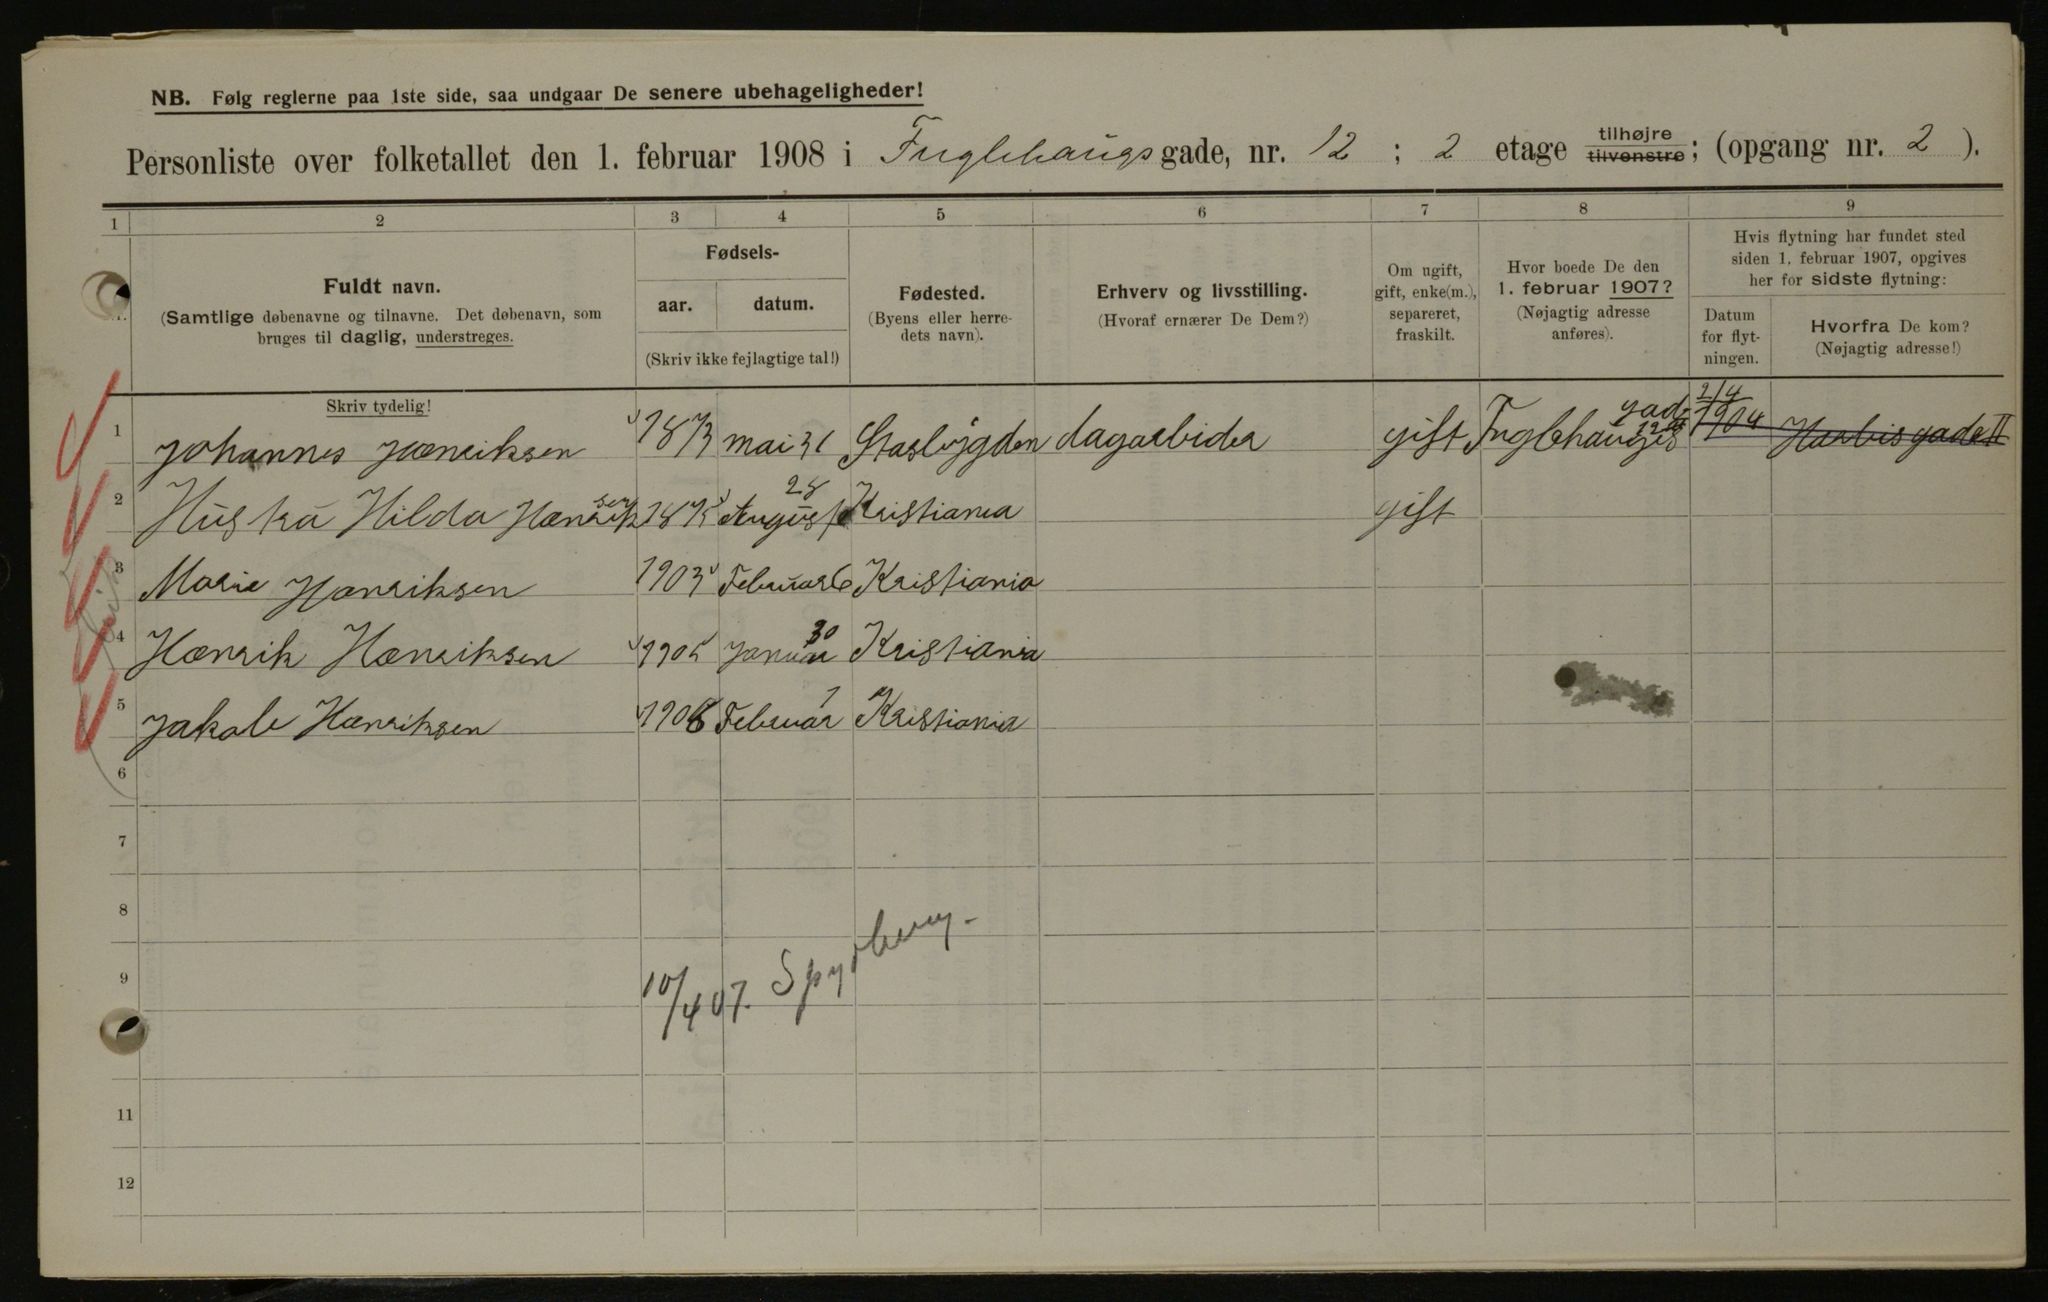 NB. Følg reglerne paa 1ste side, saa undgaar De senere ubehageligheder!
Personliste over folketallet den 1. februar 1908 i Fuglehaugs gade, nr. 12 ; 2 etage tilhøjre tilvenstre; (opgang nr. 2 ).
1 2 3 4 5 6 7 8 9
Fuldt navn.
(Samtlige døbenavne og tilnavne. Det døbenavn, som
bruges til daglig, understreges.
Skriv tydelig!
Fødsels-
aar. datum.
(Skriv ikke fejlagtige tal!)
Fødested.
(Byens eller herre-
dets navn).
Erhverv og livsstilling.
(Hvoraf ernærer De Dem?)
Om ugift,
gift, enke(m.),
separeret,
fraskilt.
Hvor boede De den
1. februar 1907?
(Nøjagtig adresse
anføres).
Hvis flytning har fundet sted
siden 1. februar 1907, opgives
her for sidste flytning:
Datum
for flyt-
ningen.
Hvorfra De kom?
(Nøjagtig adresse!)
1 Johannes Hænriksen 1873 mai 31 Stasbygden dagarbider gift Fuglehaugs gade 12 2/4 1904 Harbisgade II
2 Hustru Hilda Hænriksen 1875 August 28 Kristiania gift
3 Marie Hænriksen 1903 Februar 6 Kristiania
4 Hænrik Hænriksen 1905 Januar 30 Kristiania
5 Jakob Hænriksen 1906 Februar 7 Kristiania
6
7
8
9
10/4 07. Spydberg.
11
12